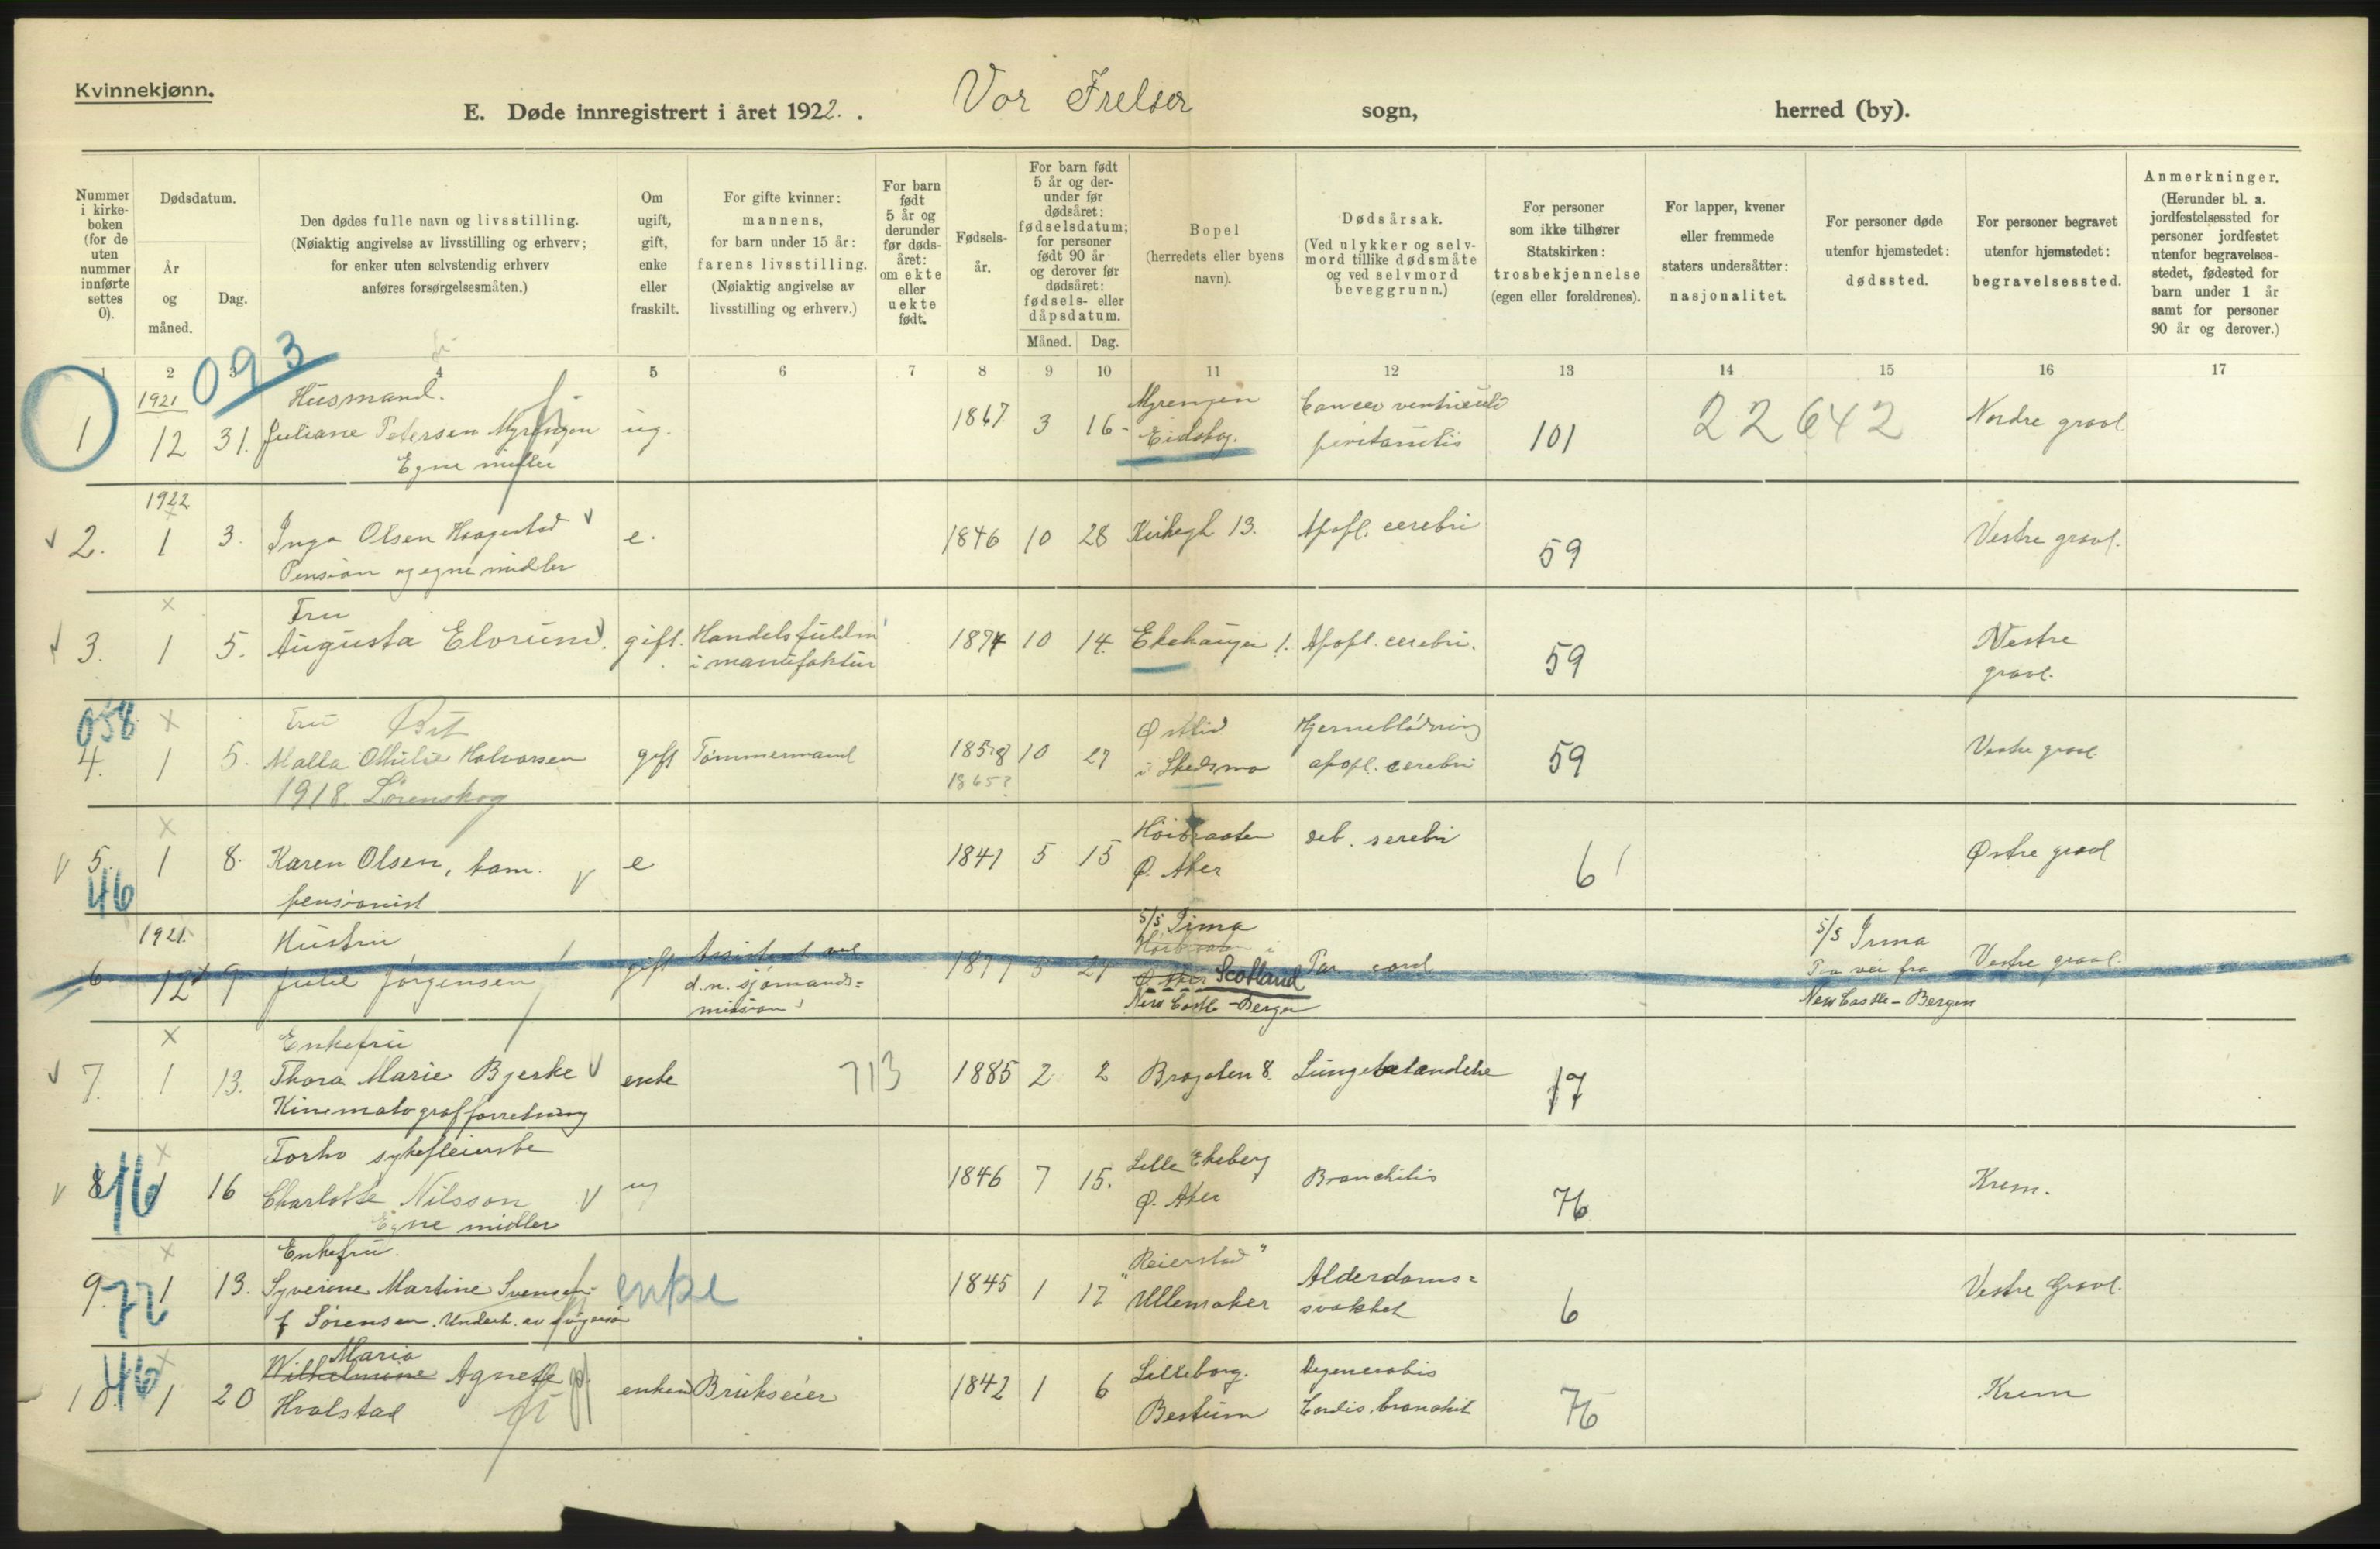 Kvinnekjønn.
E. Døde innregistrert i året 1922. Vor Frelser sogn, herred (by).
Nummer i kirkeboken (for de uten nummer innførte settes 0).
Dødsdatum.
År og måned.
Dag.
Den dødes fulle navn og livsstilling.
(Nøiaktig angivelse av livsstilling og erhverv;
for enker uten selvstendig erhverv
anføres forsørgelsesmåten.)
Om ugift, gift, enke eller fraskilt.
For gifte kvinner:
mannens,
for barn under 15 år:
farens livsstilling.
(Nøiaktig angivelse av
livsstilling og erhverv.)
For barn født 5 år og derunder før dødsåret: om ekte eller uekte født.
Fødselsår.
For barn født 5 år og derunder før dødsåret: fødselsdatum; for personer født 90 år og derover før dødsåret: fødsels- eller dåpsdatum.
Måned. Dag.
Bopel
(herredets eller byens
navn).
Dødsårsak.
(Ved ulykker og selvmord tillike dødsmåte og ved selvmord beveggrunn.)
For personer
som ikke tilhører
Statskirken:
trosbekjennelse
(egen eller foreldrenes).
For lapper, kvener
eller fremmede
staters undersåtter:
nasjonalitet.
For personer døde
utenfor hjemstedet:
dødssted.
For personer begravet
utenfor hjemstedet:
begravelsessted.
Anmerkninger.
(Herunder bl. a.
jordfestelsessted for
personer jordfestet
utenfor begravelses-
stedet, fødested for
barn under 1 år
samt for personer
90 år og derover.)
1 2 3 4 5 6 7 8 9 10 11 12 13 14 15 16 17
093
1921 Husmand. Myrengen Cancer ventriculi
1 12 31. Juliane Petersen Myrengen ug. 1867. 3 16 Eidskog. peritonitis 101 22642 Nordre gravl.
Egne midler
1922
2. 1 3. Inga Olsen Haagestad e. 1846 10 28 Kirkegt 13. Apopl. cerebri 59 Vestre gravl.
Pension og egne midler
Fru
3. 1 5. Augusta Elvrum gift. Handelsfuldm 1874 10 14. Ekehaugen 1. Apopl. cerebri. 59 Vestre
i manufaktur gravl.
058 Fru Hjerneblødning
4. 1 5. Malla Othilie Halvorsen gift Tømmermand 1858 10 27 i Skedsmo apopl. cerebri 59 Vestre gravl.
1918 Lørenskog 1865?
Høibraaten
5. 1 8. Karen Olsen, kom. e 1841 5 15 Ø. Aker deb. serebri 6 Østre gravl
46 pensionist
1921. Hustru S/S Irma S/S Irma
6 12 9 Julie Jørgensen gift Assistent ved 1877 3 27 Høibraaten Ø. Aker Scotland Paa vei fra Vestre gravl.
d.n. sjømands=
mission New Castle - Bergen New Castle - Bergen
Enkefru
7. 1 13. Thora Marie Bjerke enke 713 1885 2 2 Brogaten 8. Lungebetændelse 17
Kinematografforretning
Forho sykepleierske Lille Ekeberg
8 46 1 16 Charlotte Nilsson ug 1846 7 15. Ø. Aker Bronchitis 76 Krem.
Egne midler
Enkefru. "Reierstad"
9. 72 1 13. Syverine Martine Svensen enke 1845 1 12 Ullensaker Alderdoms= svakhet 6 Vestre Gravl.
f Sørensen. Underh. av svigersøn
Maria
10. 46 1 20 Wilhelmine Agnette enke Brukseier 1842 1 6 Lilleborg. Degeneratio
Hvalstad Bestum Cordis, bronchit 76 Krem